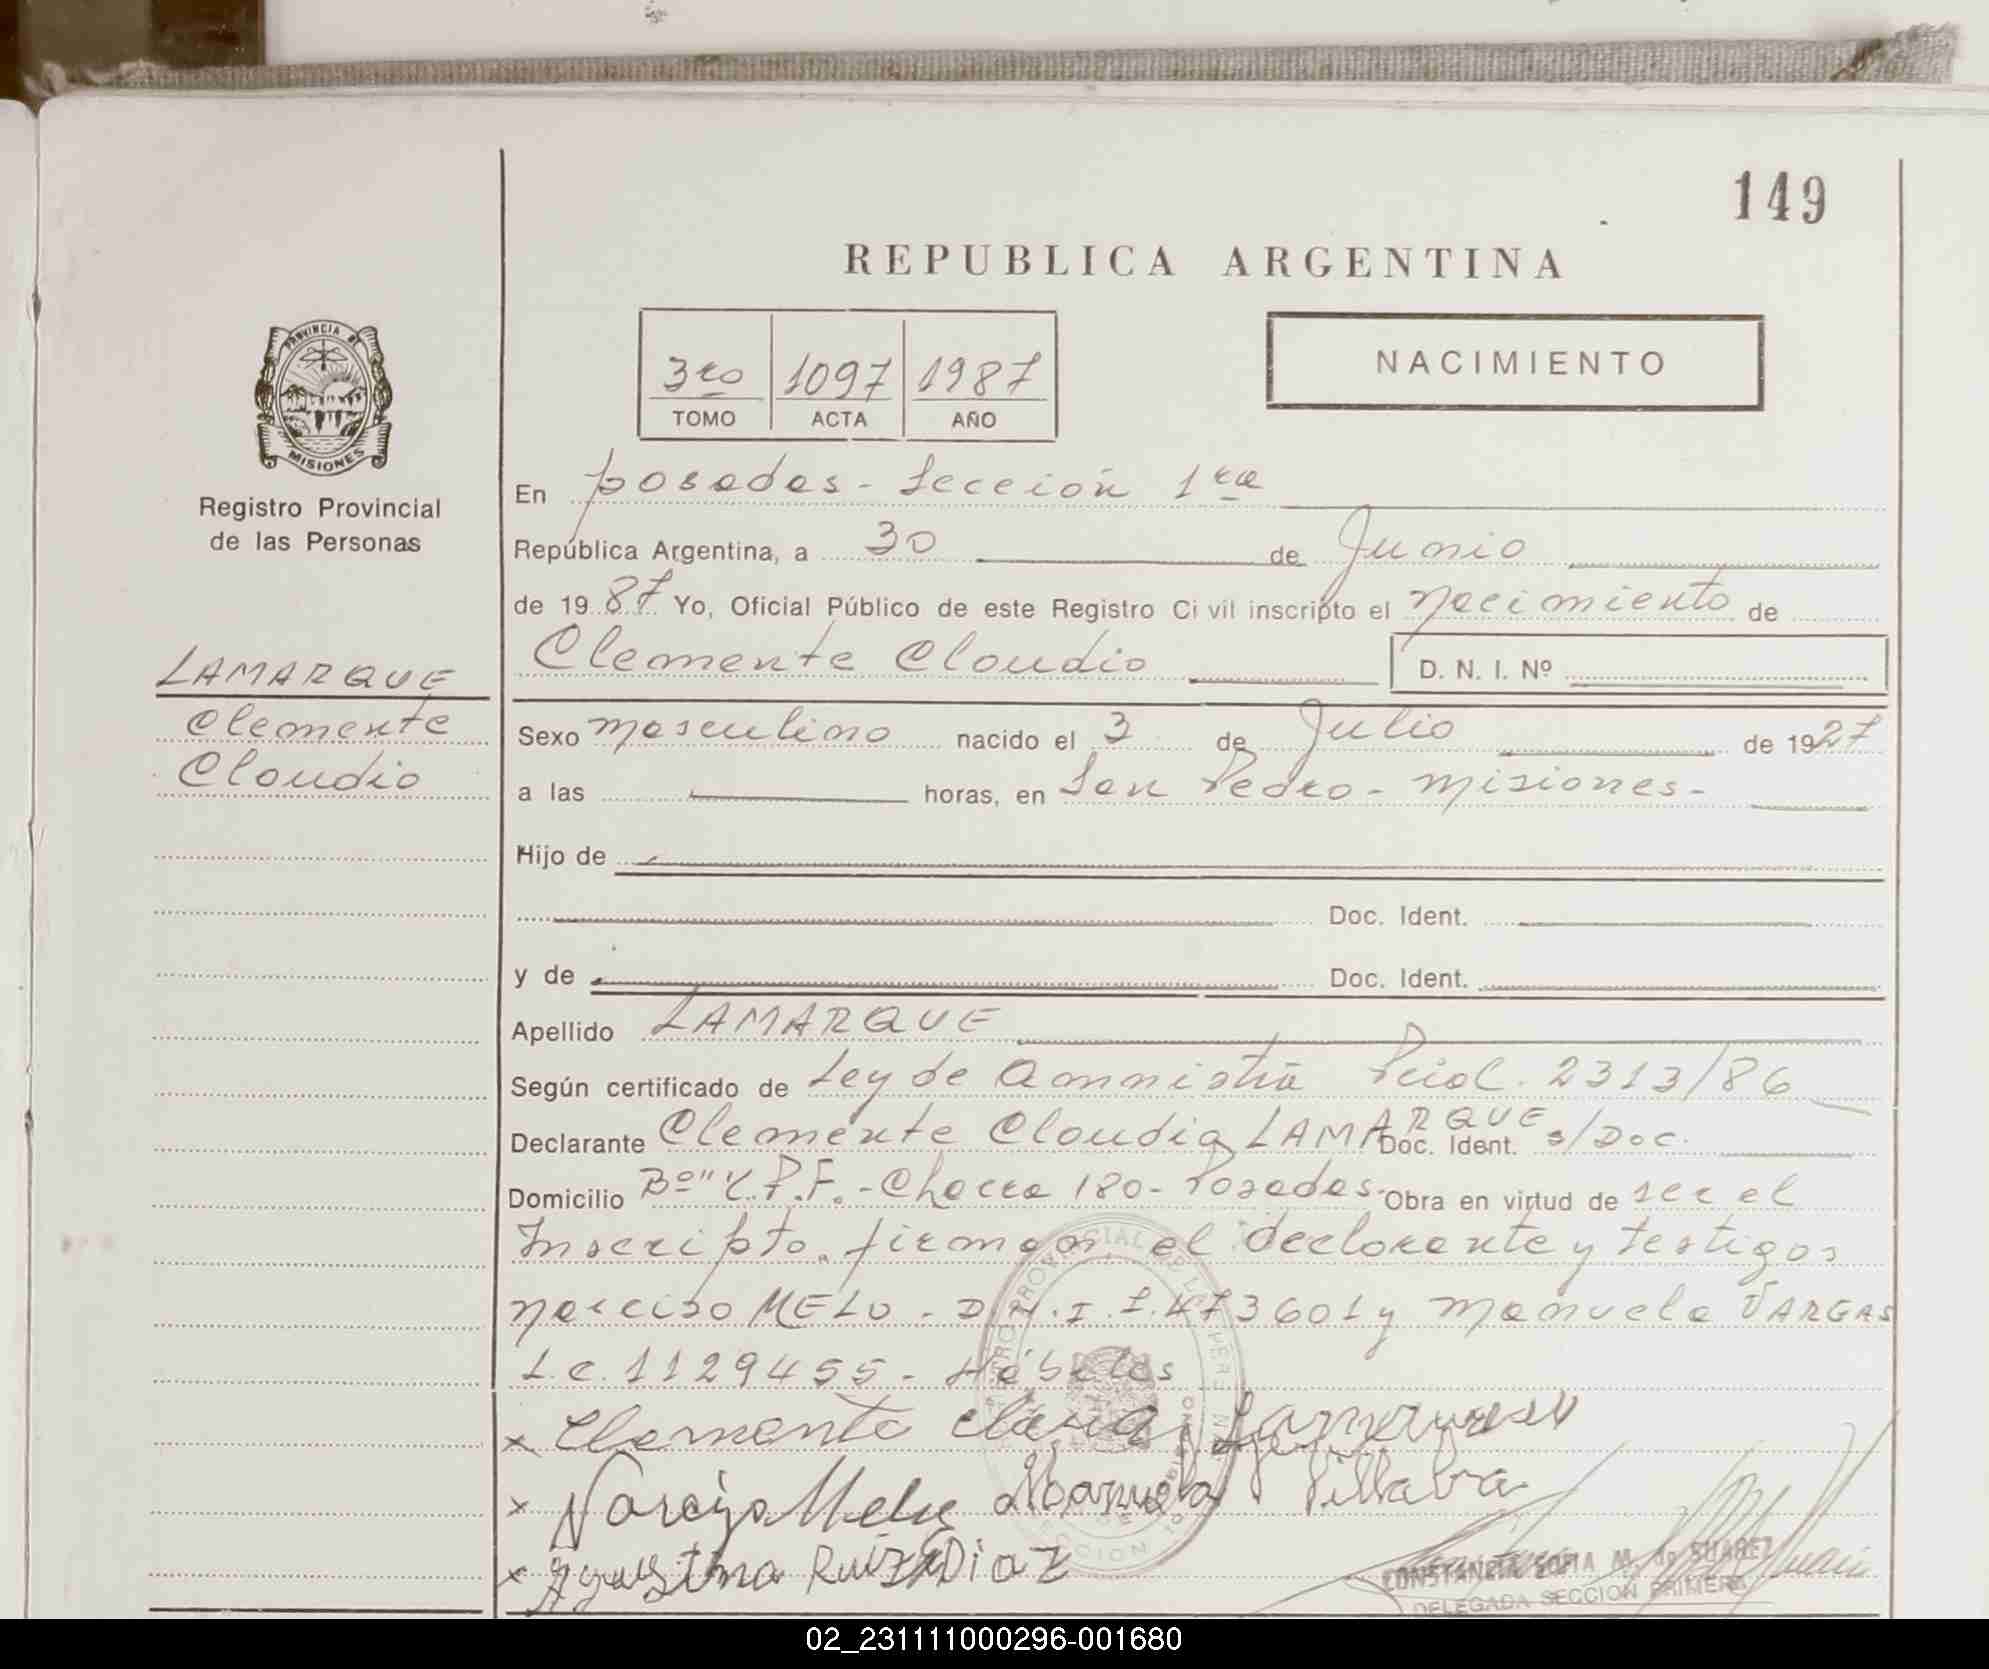 149
REPUBLICA ARGENTINA
3ro 1097 1987
TOMO ACTA AÑO
NACIMIENTO
PROVINCIA DE
MISIONES
Registro Provincial
de las Personas
En Posadas - Sección 1ra
República Argentina, a 30 de Junio
de 19 87 Yo, Oficial Público de este Registro Civil inscripto el nacimiento de
Clemente Claudio D. N. I. Nº
LAMARQUE
Clemente
Claudio
Sexo masculino nacido el 3 de Julio de 1927
a las horas, en San Pedro - Misiones -
Hijo de
Doc. Ident.
y de Doc. Ident.
Apellido LAMARQUE
Según certificado de Ley de Amnistia Pcial. 2313/86
Declarante Clemente Claudio LAMARQUE Doc. Ident. s/Doc.
Domicilio Bº "Y.P.F. - Chacra 180 - Posadas - Obra en virtud de ser el
Inscripto. firman el declarante y testigos
Narciso MELO - D.N.I. 7.473601 y Manuela VARGAS
L.C. 1129455 - Hábiles
x Clemente
x Narciso Melo Manuela Villalva
x Agustina Ruiz Diaz
CONSTANCIA SOFIA M. de SUAREZ
DELEGADA SECCION PRIMERA
02_231111000296-001680